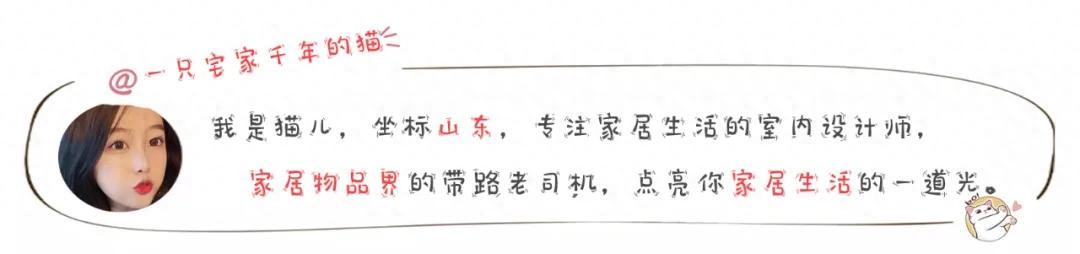 @一只宅家千年的猫
我是猫儿，坐标山东，专注家居生活的室内设计师，
家居物品界的带路老司机，点亮你家居生活的一道光。